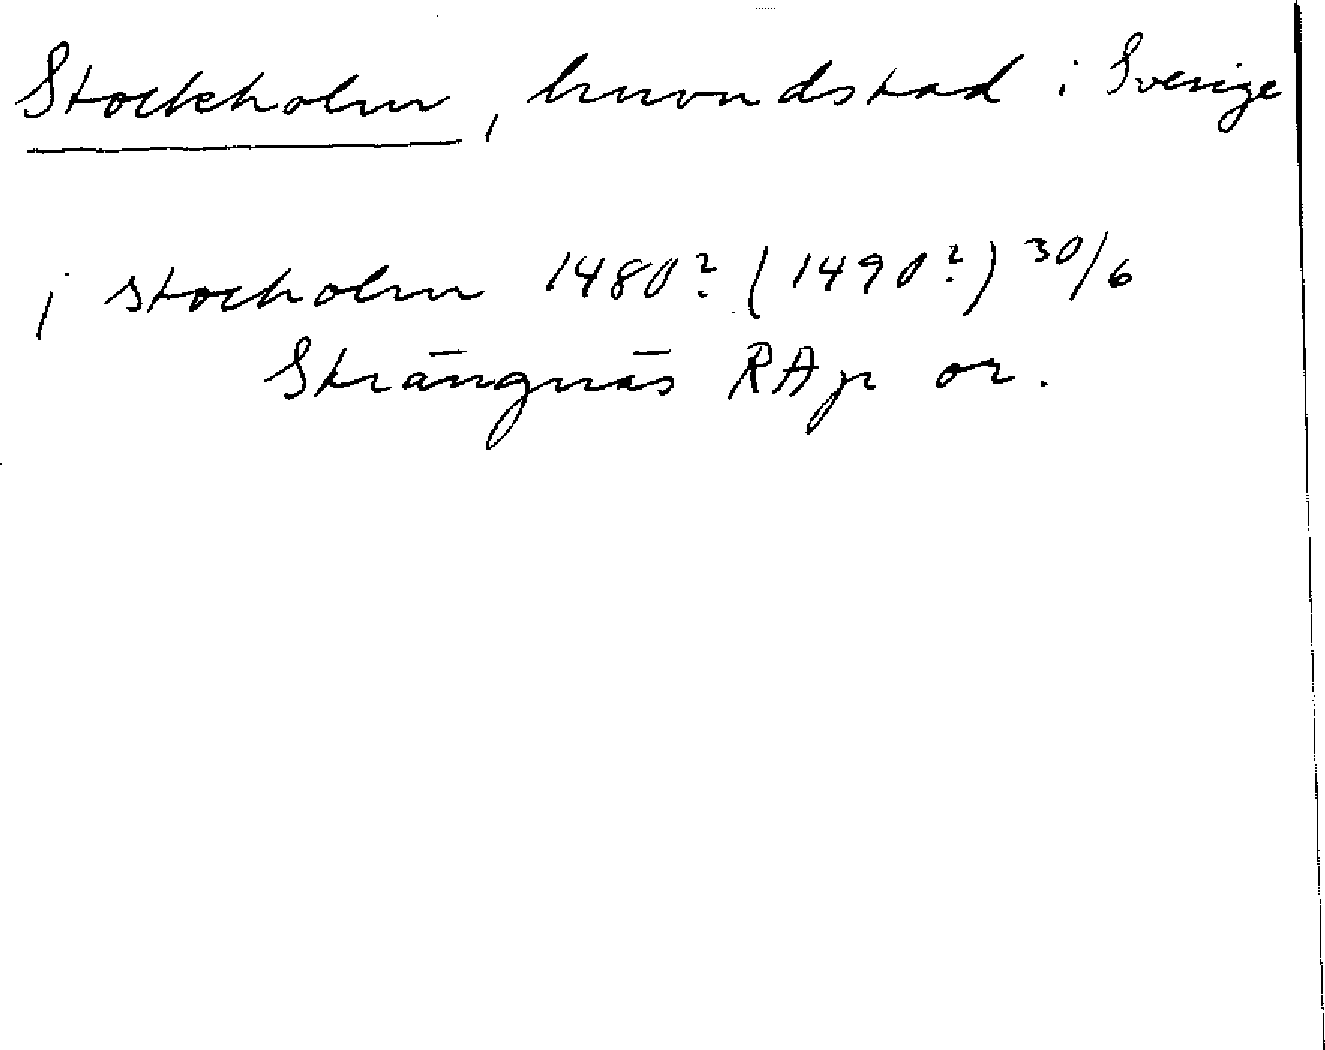 Stockholm, huvudstad i Sverige
j stocholm 1480? (1490?) 30/6
Strängnäs RAp or.